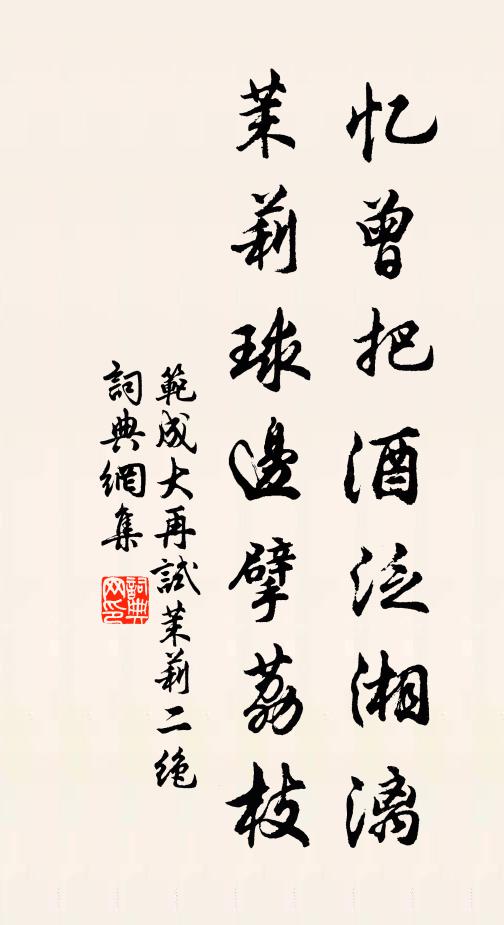 忆曾把酒泛湘漓
茉莉球邊擘荔枝
範成大再試茉莉二绝
詞典網集
詞典網印